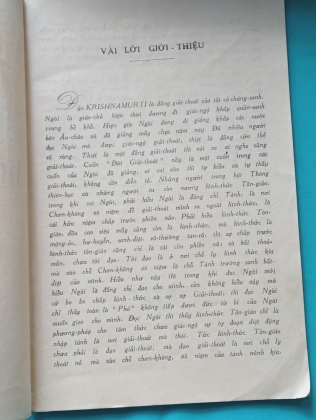 VÀI LỜI GIỚI-THIỆU
Đức KRISHNAMURTI là đấng giải-thoát của tất cả chúng-sanh.
Ngài là giáo-chủ hiện thời đương đi giác-ngộ khắp quần-sanh
trong bể khổ. Hiện giờ Ngài đang đi giảng khắp các nước
bên Âu-châu và đã giảng mấy chục năm nay. Đã nhiều người
đọc Ngài mà được giác-ngộ giải-thoát, thiệt là đấng cứu thế
rõ ràng. Thiệt là một đấng giải-thoát từ hồi nào ai nghe cũng
giải-thoát. Cuốn "Đời Giải-thoát" nầy là một cuốn trong các
cuốn của Ngài đã giảng, ai coi vào thì tự hiểu và tự thấy
giải-thoát, không cần diễn tả. Những người trong hội Thông
thiên-học và những người ta còn vương hình-thức Tôn-giáo,
trong khi coi Ngài, phải hiểu Ngài là đấng chỉ Tánh, là nơi
Chơn-không vô niệm để giải-thoát mình ra ngoài hình-thức,
cái hữu niệm chấp trước phiền não. Phải hiểu hình-thức Tôn-
giáo, dầu cao siêu mấy cũng còn là hình-thức, mà hình-thức là
mộng-ảo, hư-huyễn, sanh-diệt, vô-thường tan-rã; thì sự chấp trước
hình-thức tôn-giáo cũng chỉ là cái còn phiền não và bất thoả-
mãn, chưa tới đạo. Tới đạo là ở nơi chỗ lý hình thức kia
mà vào chỗ Chơn-không vô niệm là chỗ Tánh trường-sanh bất-
diệt của mình. Hiểu như vậy thì trong khi đọc Ngài mới
hiểu Ngài là đấng chỉ đạo cho mình, còn không hiểu vậy mà
cứ bo bo chấp hình-thức và sợ sự Giải-thoát, thì đọc Ngài
chỉ thấy toàn là "Phá" không tiếp được đức từ bi của Ngài
muốn gieo cho mình. Đọc Ngài thì thấy hình-thức Tôn-giáo chỉ là
phương-pháp cho tâm thức chưa giác-ngộ sự tự đoạn diệt đặng
nhập tánh là nơi giải-thoát mà thôi. Tức hình-thức Tôn-giáo
chưa phải là đạo giải-thoát, mà đạo giải-thoát là nơi chỗ ly
thoát nó mà vào chỗ chơn-không, vô niệm của tánh mình kia.